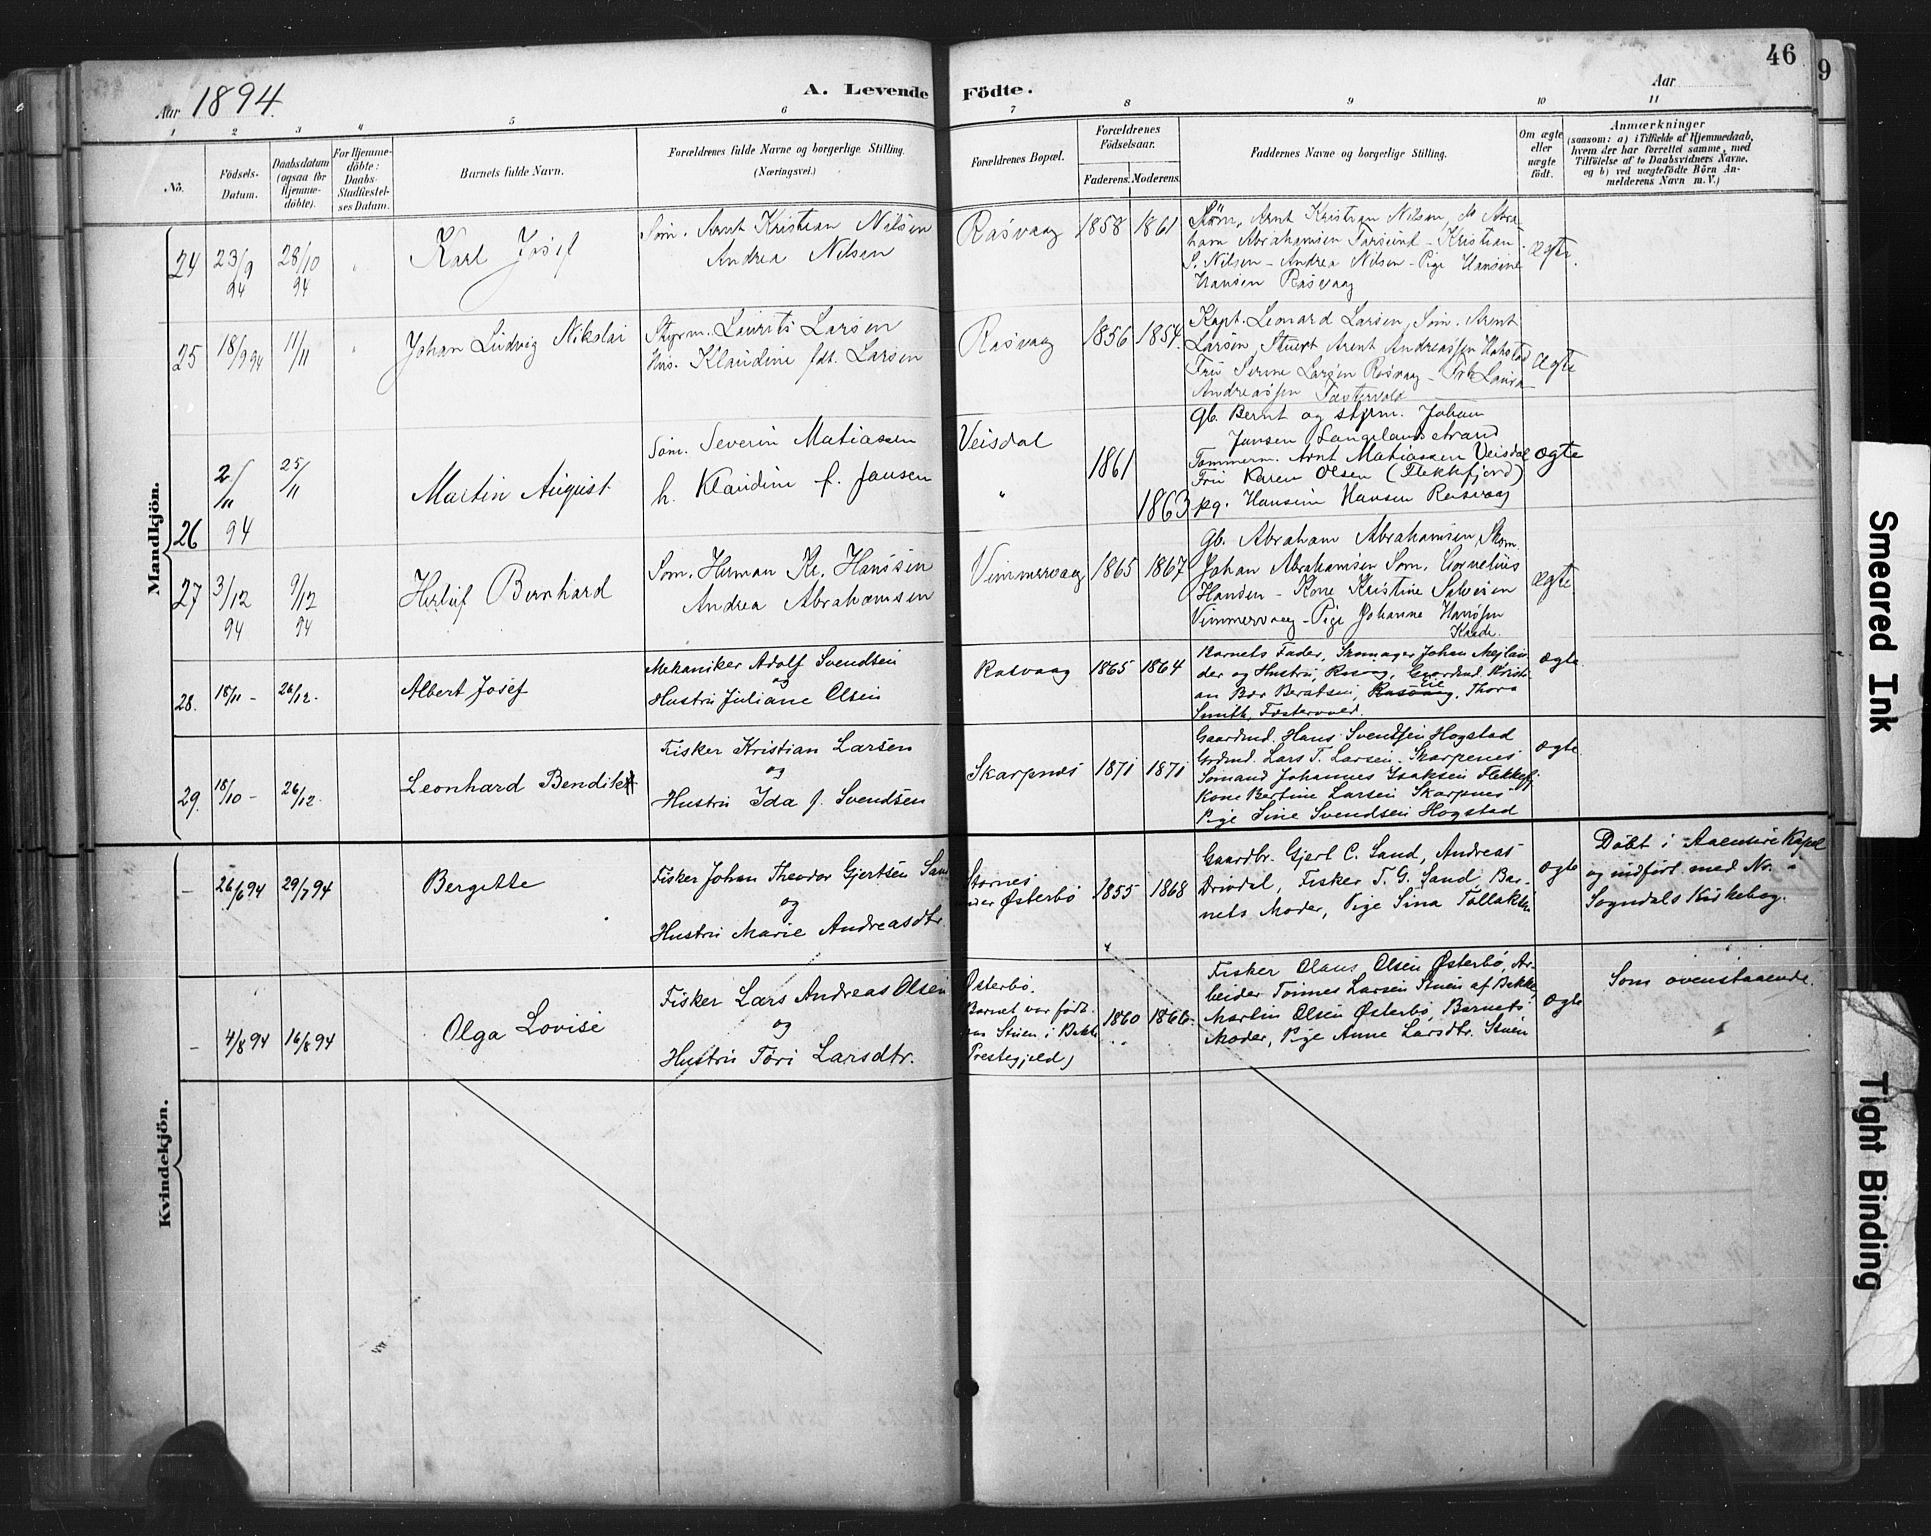 46
9
Aar 1894.
A. Levende Födte.
Aar
1 2 3 4 5 6 7 8 9 10 11
No.
Födsels-Datum.
Daabsdatum (ogsaa for Hjemme-döbte).
For Hjemme-döbte: Daabs-Stadfæstel-ses Datum.
Barnets fulde Navn.
Forældrenes fulde Navne og borgerlige Stilling. (Næringsvei.)
Forældrenes Bopæl.
Forældrenes Födselsaar.
Faderens. Moderens.
Faddernes Navne og borgerlige Stilling.
Om ægte eller uægte födt.
Anmærkninger
(saasom: a) i Tilfælde af Hjemmedaab, hvem der har forrettet samme, med Tilföielse af to Daabsvidners Navne, og b) ved uægtefödte Börn An-melderens Navn m. V.)
Mandkjön.
24
23/9 94
28/10 94
Karl Josef
Søm. Arnt Kristian Nilsen
Andrea Nilsen
Rasvaag
1858
1861
Arnt Kristian Nilsen, Abra-
ham Abrahamsen Farsund - Kristian
S. Nilsen - Andrea Nilsen - Pige Hansine
Hansen Rasvaag
ægte.
25
18/9 94
11/11
Johan Ludvig Nikolai
Styrm. Laurits Larsen
Hus. Klaudine fdt. Larsen
Rasvaag
1856
1854.
Kapt. Leonard Larsen, Søm. Arent
Larsen, Stuert Arent Andreassen
Fru Serine Larsen Rasvaag - Laura
Andreassen
ægte
26
2/11 94
25/11
Martin August
Søm. Severin Matiassen
h. Klaudine f. Jansen
Veisdal
"
1861
1863
Gb. Bernt og styrm. Johan
Jansen Langelandsstrand
Tømmerm. Arnt Matiassen Veisdal
Fru Karen Olsen (Flekkefjord)
pg. Hansine Hansen Rasvaag
ægte
27
3/12 94
9/12 94
Herluf Bernhard
Søm. Herman Kr. Hanssen
Andrea Abrahamsen
Vimmervaag
1865
1867
Gb. Abraham Abrahamsen, Skom.
Johan Abrahamsen Søm. Cornelius
Hansen - Kone Kristine Salvesen
Vimmervaag - Pige Johanne Hansen
ægte.
28.
18/11 -
26/12.
Albert Josef
Mekaniker Adolf Svendsen
og
Hustru Juliane Olsen
Rasvaag
1865
1864
Barnets Fader, Skomager Johan Mejlæn-
der og Hustru, Rasvaag, Gaardmd. Kristi-
an Boe Berntsen, Rasvaag, Thora
Smith, Fosterwold.
ægte
29.
18/10 -
26/12.
Leonhard Bendik
Fisker Kristian Larsen
og
Hustru Ida f. Svendsen
Skarpnes
1871
1871
Gaardmd. Hans Svendsen Hogstad
Grdmd. Lars T. Larsen Skarpenes
Sömand Johannes Isaksen Flekkefj.
Kone Bertine Larsen Skarpnes
Pige Sine Svendsen Hogstad
ægte
Kvindekjön.
-
26/6 94
29/7 94
Bergitte
Fisker Johan Theodor Gjertsen Sand
og
Hustru Marie Andreasdtr.
Stornes
under Østerbø
1855
1868
Gaardbr. Gjert C. Sand, Andreas
Drivdal, Fisker T. G. Sand, Bar-
nets Moder, Pige Sina Tollaksen
ægte
Döbt i Aaensire Kapel
og indfört med No. -
Sogndals Kirkebog.
-
4/8 94
16/8 94
Olga Lovise
Fisker Lars Andreas Olsen
og
Hustru Tóri Larsdtr.
Østerbø.
Barnet var födt
paa Stuen i Bakke
Prestegjeld)
1860
1866
Fisker Olaus Olsen Østerbö, Ar-
beider Tönnes Larsen Stuen af Bakke,
Martin Olsen Østerbö, Barnets
Moder, Pige Anne Larsdtr. Stuen
ægte
Som ovenstaaende.
Smeared Ink
Tight Binding